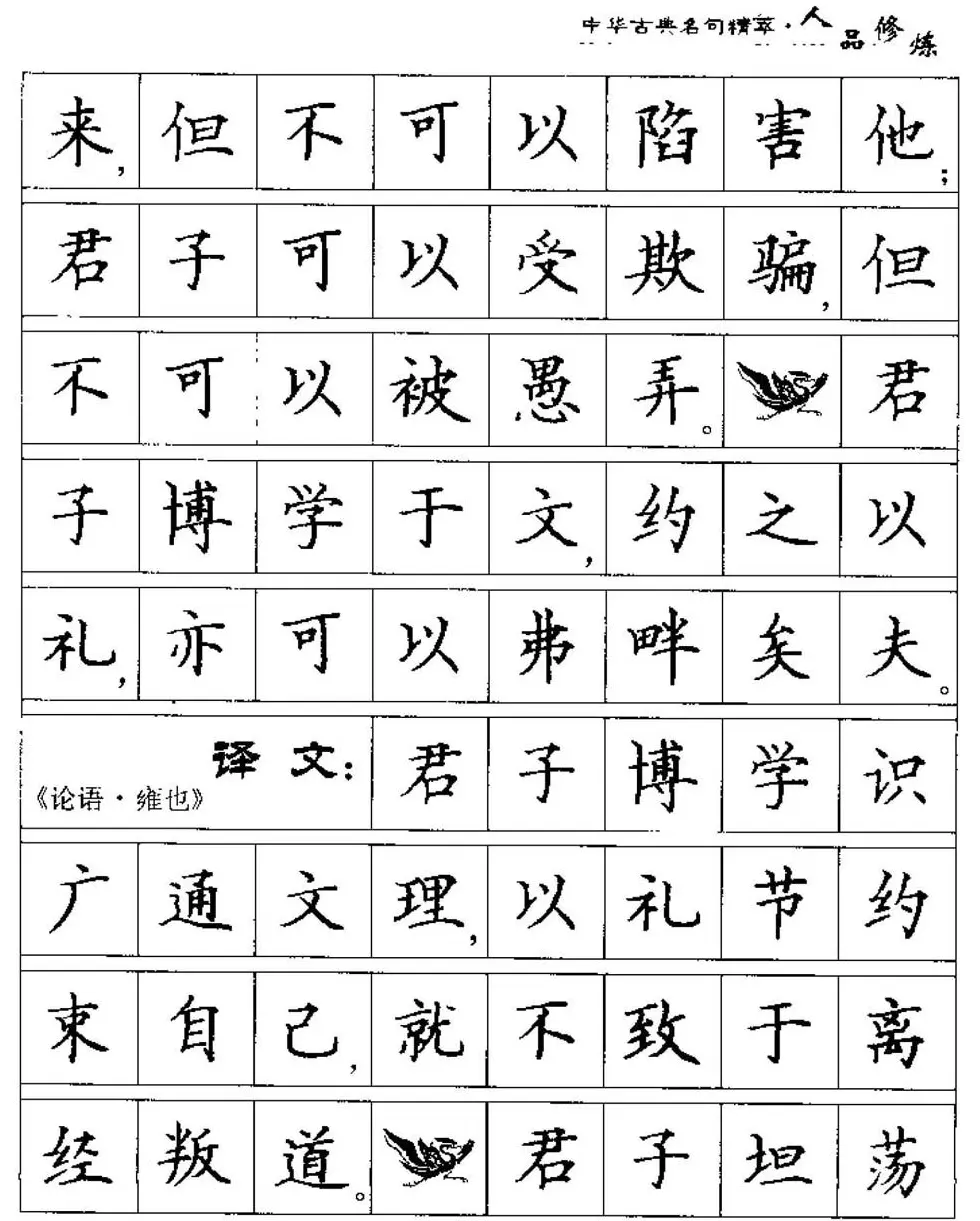 中华古典名句精萃·人品修炼
来,但不可以陷害他;
君子可以受欺骗,但
不可以被愚弄。君
子博学于文,约之以
礼,亦可以弗畔矣夫。
《论语·雍也》 译文:君子博学识
广通文理,以礼节约
束自己,就不致于离
经叛道。君子坦荡